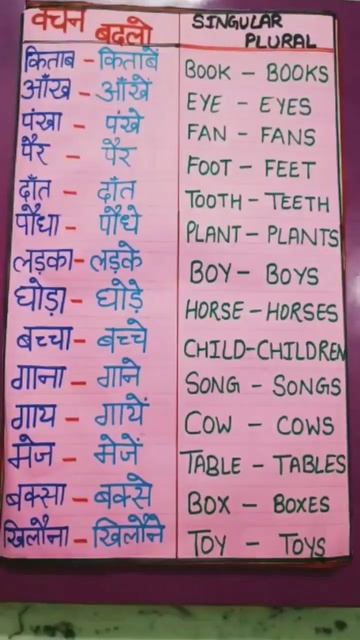 वचन बदलो
किताब - किताबें
आँख - आँखें
पंखा - पंखे
पैर - पैर
दाँत - दाँत
पौधा - पौधे
लड़का - लड़के
घोड़ा - घोड़े
बच्चा - बच्चे
गाना - गाने
गाय - गायें
मेज - मेजें
बक्सा - बक्से
खिलौना - खिलौने
SINGULAR
PLURAL
BOOK - BOOKS
EYE - EYES
FAN - FANS
FOOT - FEET
TOOTH - TEETH
PLANT - PLANTS
BOY - BOYS
HORSE - HORSES
CHILD - CHILDREN
SONG - SONGS
COW - COWS
TABLE - TABLES
BOX - BOXES
TOY - TOYS